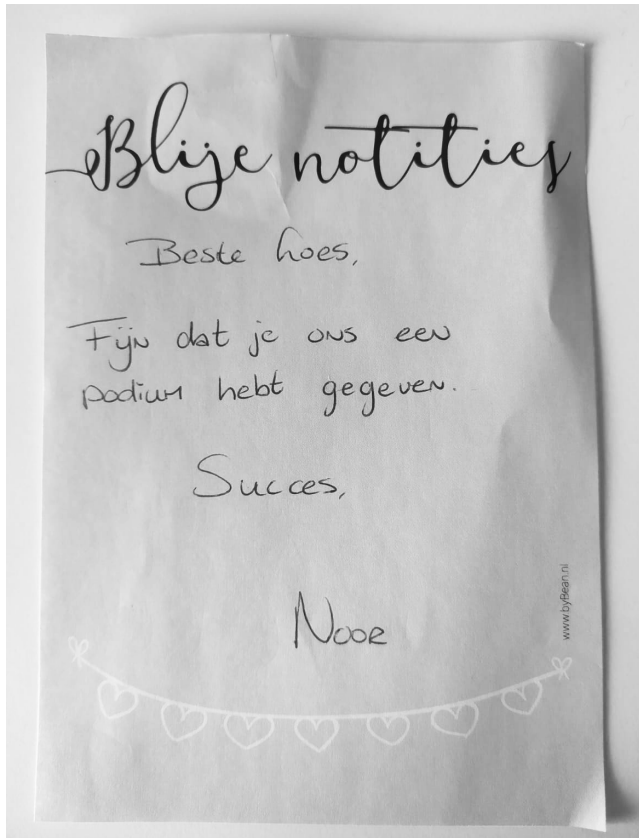 Blije notities
Beste Loes,
Fijn dat je ons een
podium hebt gegeven.
Succes,
Noor
www.byBean.nl